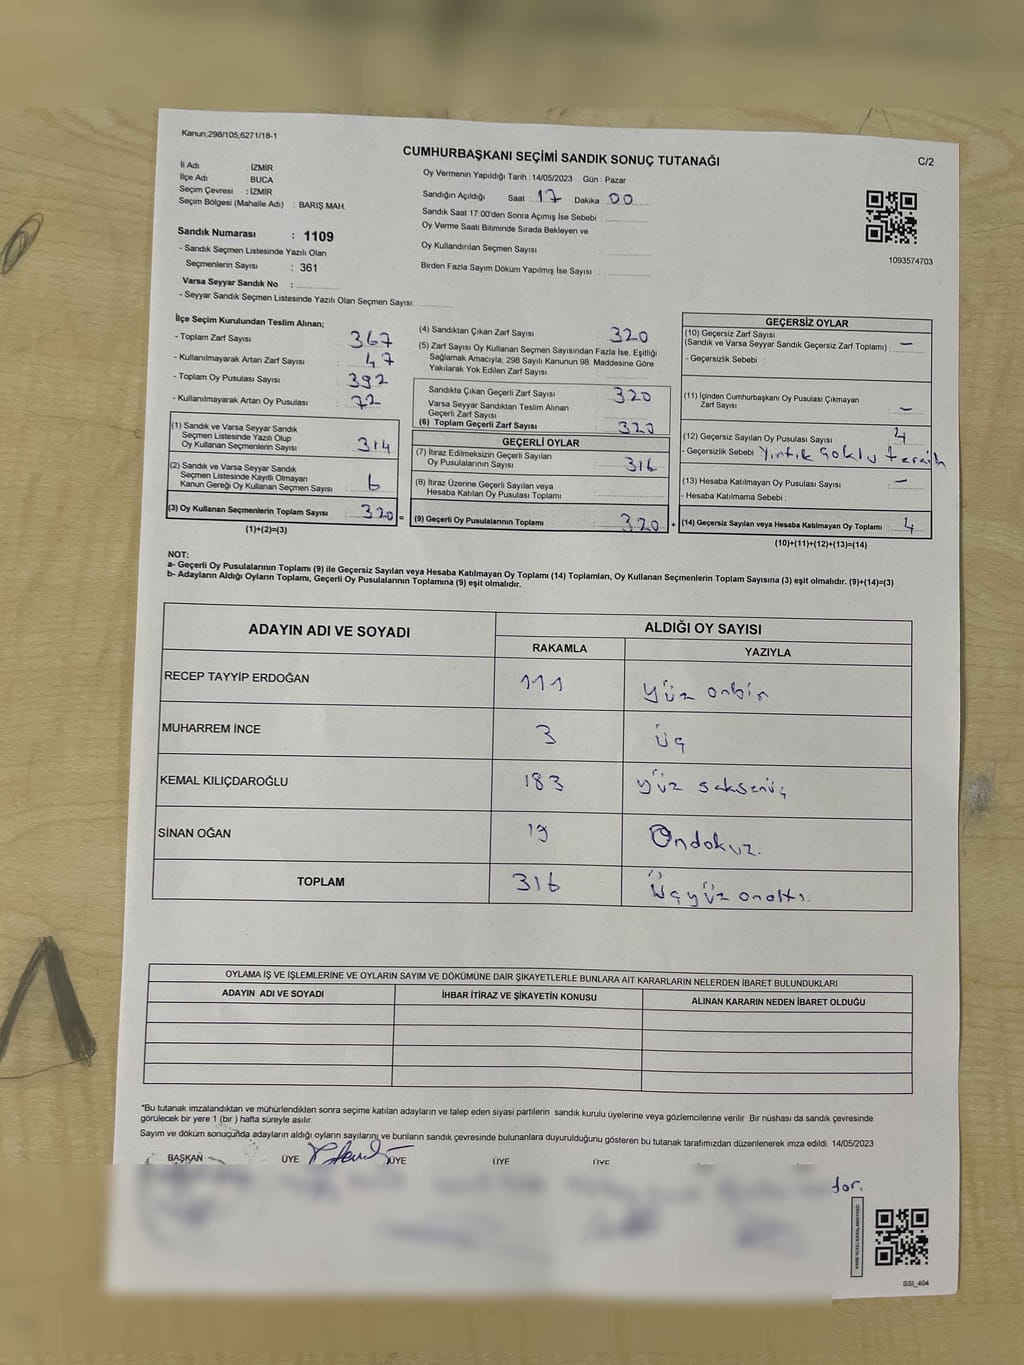 Kanun;298/105;6271/18-1
CUMHURBAŞKANI SEÇİMİ SANDIK SONUÇ TUTANAĞI
C/2
İl Adı : İZMİR
İlçe Adı : BUCA
Seçim Çevresi : İZMİR
Seçim Bölgesi (Mahalle Adı) : BARIŞ MAH.
Sandık Numarası : 1109
- Sandık Seçmen Listesinde Yazılı Olan
Seçmenlerin Sayısı : 361
Varsa Seyyar Sandık No :
- Seyyar Sandık Seçmen Listesinde Yazılı Olan Seçmen Sayısı:
Oy Vermenin Yapıldığı Tarih : 14/05/2023 Gün : Pazar
Sandığın Açıldığı Saat : 17 Dakika 00
Sandık Saat 17:00'den Sonra Açımış İse Sebebi :
Oy Verme Saati Bitiminde Sırada Bekleyen ve
Oy Kullandırılan Seçmen Sayısı
Birden Fazla Sayım Döküm Yapılmış İse Sayısı :
1093574703
İlçe Seçim Kurulundan Teslim Alınan;
- Toplam Zarf Sayısı : 367
- Kullanılmayarak Artan Zarf Sayısı : 47
- Toplam Oy Pusulası Sayısı : 392
- Kullanılmayarak Artan Oy Pusulası : 72
(1) Sandık ve Varsa Seyyar Sandık
Seçmen Listesinde Yazılı Olup
Oy Kullanan Seçmenlerin Sayısı : 314
(2) Sandık ve Varsa Seyyar Sandık
Seçmen Listesinde Kayıtlı Olmayan
Kanun Gereği Oy Kullanan Seçmen Sayısı : 6
(3) Oy Kullanan Seçmenlerin Toplam Sayısı : 320 =
(1)+(2)=(3)
(4) Sandıktan Çıkan Zarf Sayısı : 320
(5) Zarf Sayısı Oy Kullanan Seçmen Sayısından Fazla İse, Eşitliği
Sağlamak Amacıyla, 298 Sayılı Kanunun 98. Maddesine Göre
Yakılarak Yok Edilen Zarf Sayısı :
Sandıkta Çıkan Geçerli Zarf Sayısı : 320
Varsa Seyyar Sandıktan Teslim Alınan
Geçerli Zarf Sayısı :
(6) Toplam Geçerli Zarf Sayısı : 320
GEÇERLİ OYLAR
(7) İtiraz Edilmeksizin Geçerli Sayılan
Oy Pusulalarının Sayısı : 316
(8) İtiraz Üzerine Geçerli Sayılan veya
Hesaba Katılan Oy Pusulası Toplamı :
(9) Geçerli Oy Pusulalarının Toplamı : 320 +
GEÇERSİZ OYLAR
(10) Geçersiz Zarf Sayısı
(Sandık ve Varsa Seyyar Sandık Geçersiz Zarf Toplamı) : -
- Geçersizlik Sebebi :
(11) İçinden Cumhurbaşkanı Oy Pusulası Çıkmayan
Zarf Sayısı : -
(12) Geçersiz Sayılan Oy Pusulası Sayısı : 4
- Geçersizlik Sebebi : Yırtık Çoklu tercih
(13) Hesaba Katılmayan Oy Pusulası Sayısı : -
- Hesaba Katılmama Sebebi :
(14) Geçersiz Sayılan veya Hesaba Katılmayan Oy Toplamı : 4
(10)+(11)+(12)+(13)=(14)
NOT:
a- Geçerli Oy Pusulalarının Toplamı (9) ile Geçersiz Sayılan veya Hesaba Katılmayan Oy Toplamı (14) Toplamları, Oy Kullanan Seçmenlerin Toplam Sayısına (3) eşit olmalıdır. (9)+(14)=(3)
b- Adayların Aldığı Oyların Toplamı, Geçerli Oy Pusulalarının Toplamına (9) eşit olmalıdır.
ADAYIN ADI VE SOYADI
ALDIĞI OY SAYISI
RAKAMLA YAZIYLA
RECEP TAYYİP ERDOĞAN 111 Yüz onbir
MUHARREM İNCE 3 üç
KEMAL KILIÇDAROĞLU 183 yüz seksenüç
SİNAN OĞAN 19 Ondokuz.
TOPLAM 316 Üçyüz onaltı.
OYLAMA İŞ VE İŞLEMLERİNE VE OYLARIN SAYIM VE DÖKÜMÜNE DAİR ŞİKAYETLERLE BUNLARA AİT KARARLARIN NELERDEN İBARET BULUNDUKLARI
ADAYIN ADI VE SOYADI İHBAR İTİRAZ VE ŞİKAYETİN KONUSU ALINAN KARARIN NEDEN İBARET OLDUĞU
"Bu tutanak imzalandıktan ve mühürlendikten sonra seçime katılan adayların ve talep eden siyasi partilerin sandık kurulu üyelerine veya gözlemcilerine verilir Bir nüshası da sandık çevresinde
görülecek bir yere 1 (bir ) hafta süreyle asılır.
Sayım ve döküm sonucunda adayların aldığı oyların sayılarını ve bunların sandık çevresinde bulunanlara duyurulduğunu gösteren bu tutanak tarafımızdan düzenlenerek imza edildi. 14/05/2023
BAŞKAN ÜYE ÜYE ÜYE ÜYE
SSI_404